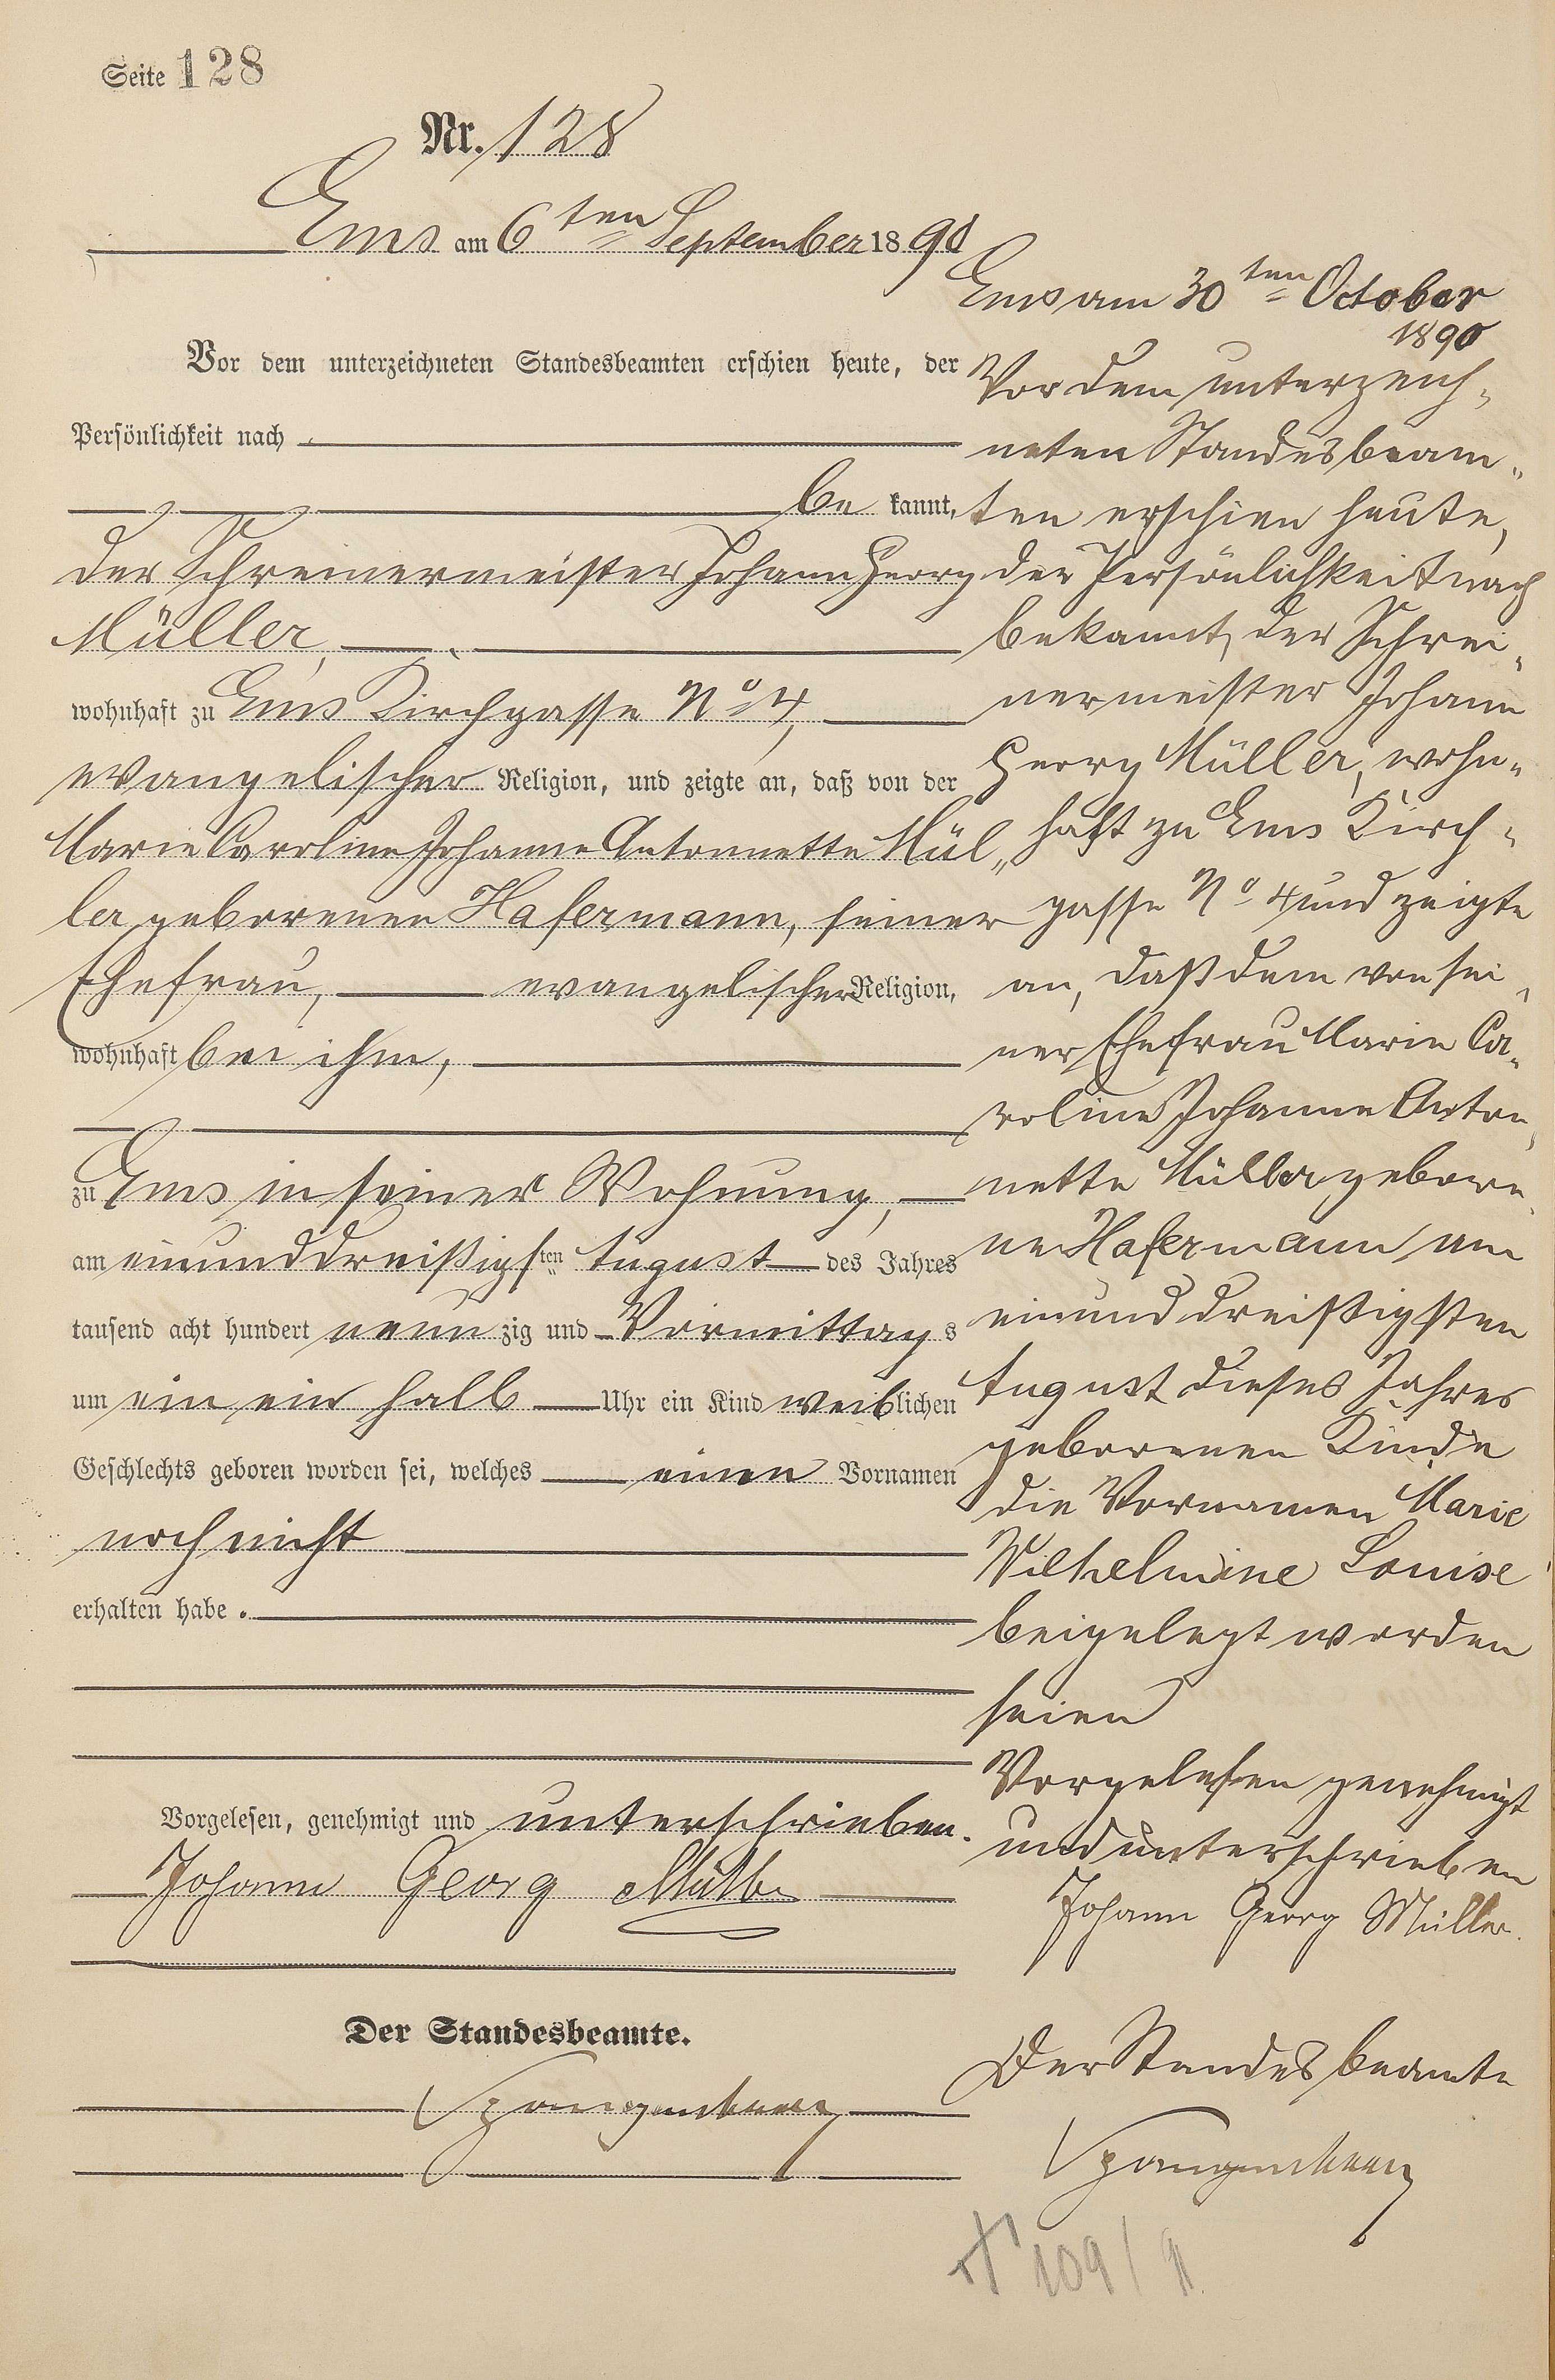 Seite 128
Nr. 128
Ems am 6ten September 1890
Vor dem unterzeichneten Standesbeamten erschien heute, der
Persönlichkeit nach
be kannt,
der Schreinermeister Johann Georg
Müller,
wohnhaft zu Ems Kirchgasse No 4,
evangelischer Religion, und zeigte an, daß von der
Marie Caroline Johanne Antonnette Mül„
ler geborenen Hafermann, seiner
Ehefrau, evangelischer Religion,
wohnhaft bei ihm,
zu Ems in seiner Wohnung,
am einunddreißigsten August des Jahres
tausend acht hundert neun zig und Vormittags
um ein ein halb Uhr ein Kind weiblichen
Geschlechts geboren worden sei, welches einen Vornamen
noch nicht
erhalten habe.
Vorgelesen, genehmigt und unterschrieben.
Johann Georg Müller
Der Standesbeamte.
Ems am 30ten October
1890
Vor dem unterzeich„
neten Standesbeam„
ten erschien heute,
der Persönlichkeit nach
bekannt, der Schrei„
nermeister Johann
Georg Müller, wohn„
haft zu Ems Kirch„
gasse No 4 und zeigte
an, daß dem von sei„
ner Ehefrau Marie Ca„
roline Johanne Anton„
nette Müller gebore„
ne Hafermann am
einunddreißigsten
August dieses Jahres
geborenen Kinde
die Vornamen Marie
Wilhelmine Louise
beigelegt worden
seien
Vorgelesen genehmigt
und unterschrieben
Johann Georg Müller.
Der Standesbeamte
† 109/91